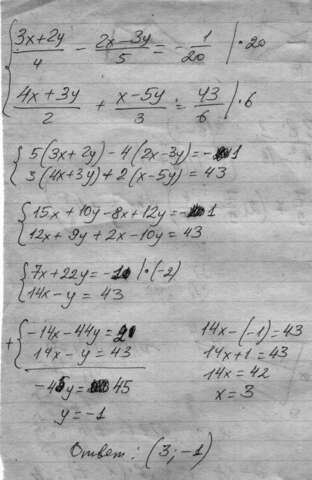 { (3x+2y)/4 - (2x-3y)/5 = -1/20 |·20
(4x+3y)/2 + (x-5y)/3 = 43/6 |·6
{ 5(3x+2y)-4(2x-3y)=-1
3(4x+3y)+2(x-5y)=43
{ 15x+10y-8x+12y=-1
12x+9y+2x-10y=43
{ 7x+22y=-1 |·(-2)
14x-y=43
+{ -14x-44y=2
14x-y=43
-45y=45
y=-1
14x-(-1)=43
14x+1=43
14x=42
x=3
Ответ: (3;-1)